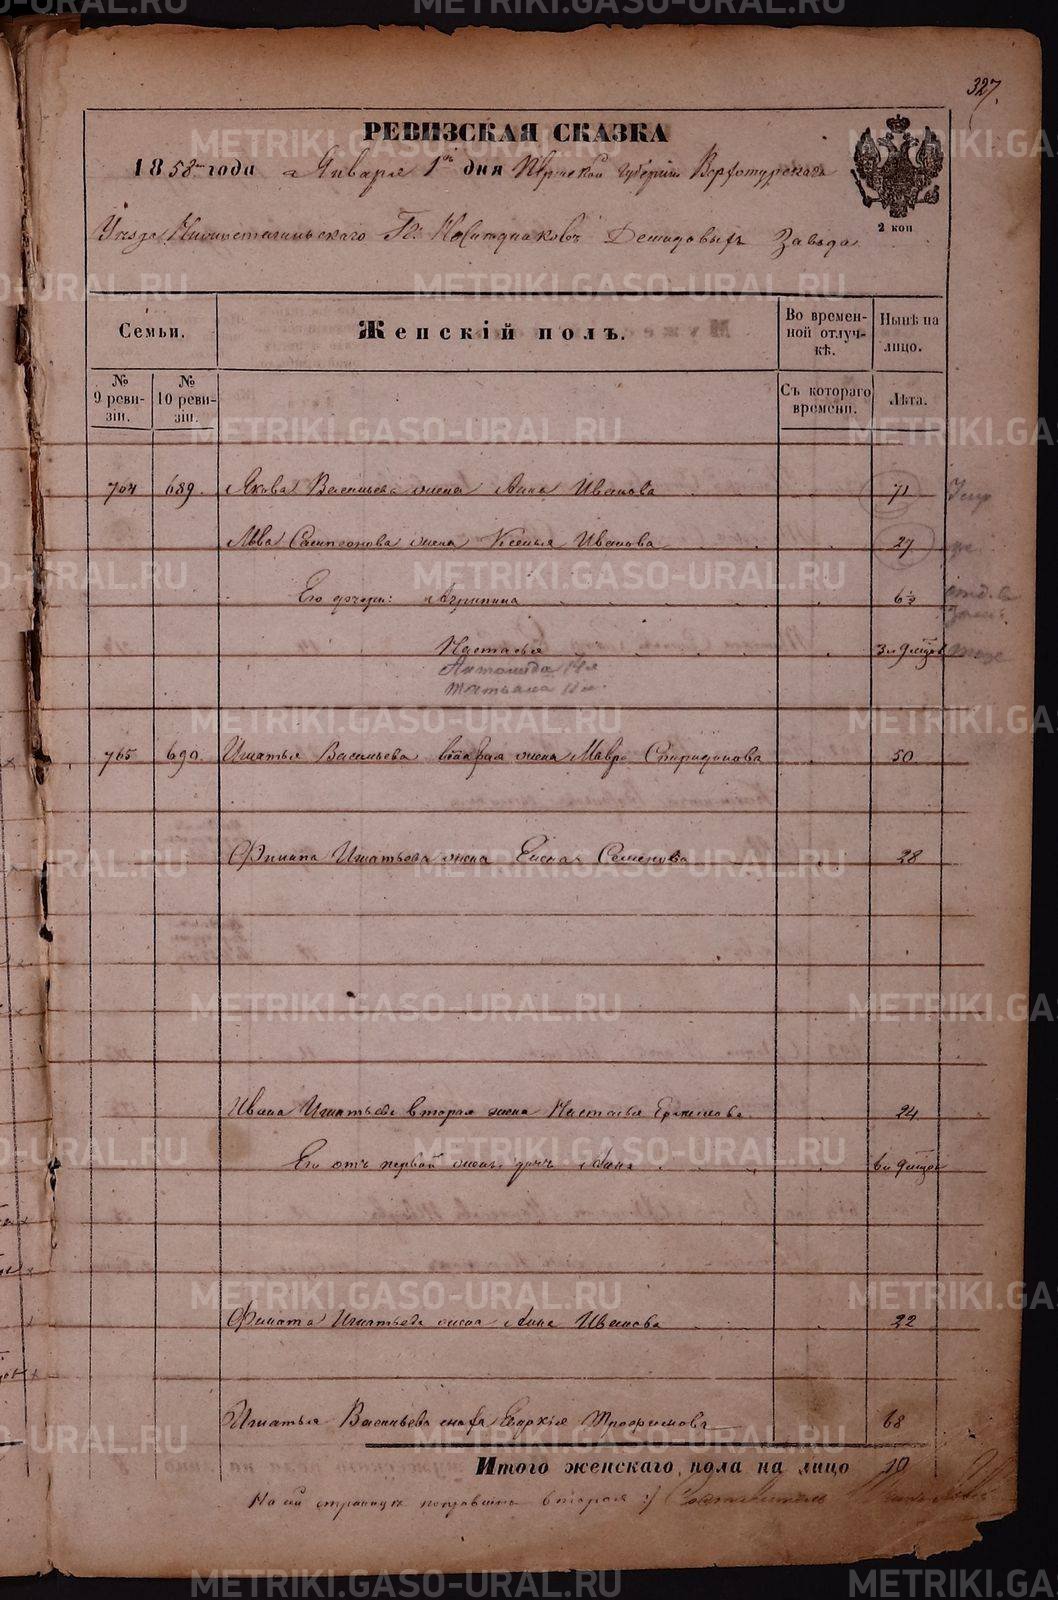 327.
РЕВИЗСКАЯ СКАЗКА
1858 года Января 1го дня Пермской Губернии Верхотурскаго
Уезда Нижнетагильскаго Гг. Наследников Демидовых Завода
2 коп
Семьи.
Женскій полъ.
Во временной отлучкѣ.
Нынѣ на лицо.
№ 9 ревизіи.
№ 10 ревизіи.
Съ котораго времени.
Лѣта.
704 689. Якова Васильева жена Анна Иванова 71
Льва Сампсонова жена Ксенья Иванова 27
Его дочери: Агрипина 6½
Настасья 3 и 9 мцов тоже
Антонида 14л
Татьяна 11л.
705 690. Игнатья Васильева вторая жена Мавра Спиридонова 50
Филипа Игнатьева жена Елена Семенова 28
Ивана Игнатьева вторая жена Настасья 24
Его отъ первой жены дочь Анна 6 и 9 мцов
Филата Игнатьева жена Анна Иванова 22
Игнатья Васильева сноха Трофимова 68
Итого женскаго пола на лицо 10
На сей странице поправлено вторая
METRIKI.GASO-URAL.RU